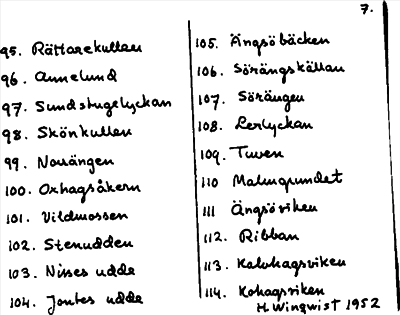 7.
95. Rättarekullen
96. Annelund
97. Sundstugelyckan
98. Skönkullen
99. Norrängen
100. Oxhagsåkern
101. Vildmossen
102. Stenudden
103. Nisses udde
104. Jontes udde
105. Ängsöbäcken
106. Sörängskällan
107. Sörängen
108. Lerlyckan
109. Tuven
110 Malmgrundet
111 Ängsöviken
112. Ribban
113. Kalvhagsviken
114. Kohagsviken
H. Winqwist 1952